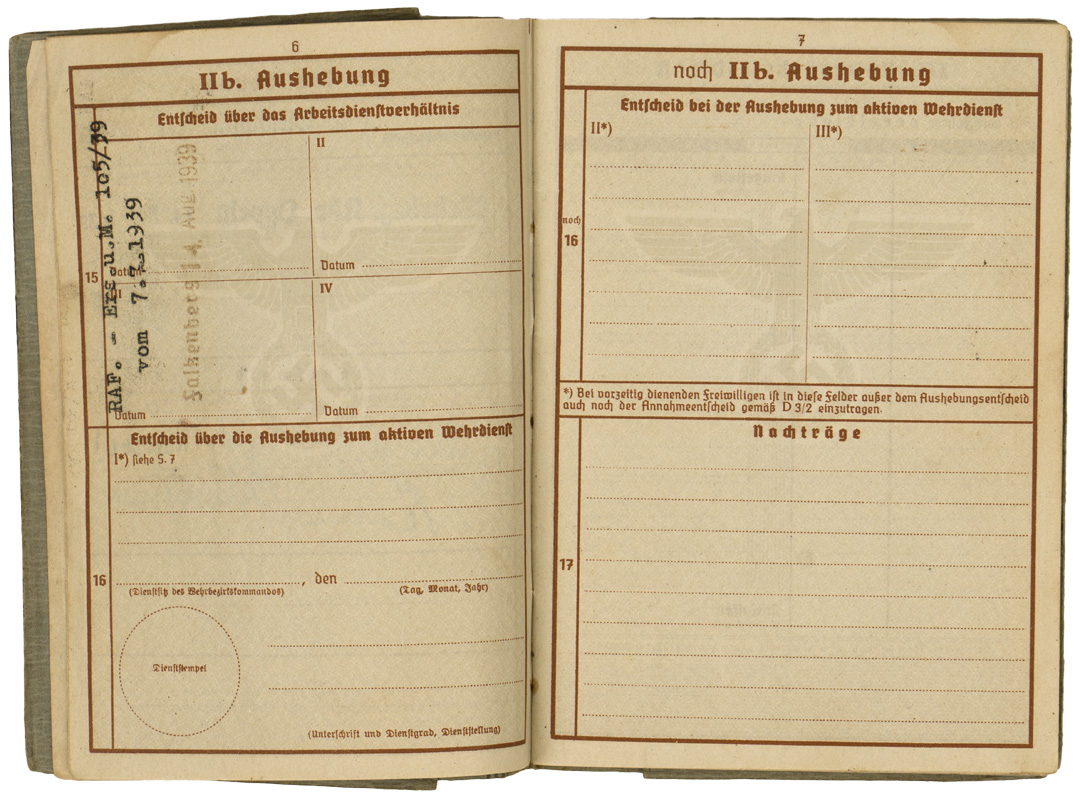 6
IIb. Aushebung
Entscheid über das Arbeitsdienstverhältnis
RAF. - Ers.u.M. 105/39
vom 7.7.1939
Falkenberg 14. Aug. 1939
II
15
Datum
Datum
IV
Datum
Datum
Entscheid über die Aushebung zum aktiven Wehrdienst
I*) siehe S. 7
16
, den
(Dienstsitz des Wehrbezirkskommandos) (Tag, Monat, Jahr)
Dienststempel
(Unterschrift und Dienstgrad, Dienststellung)
7
noch IIb. Aushebung
Entscheid bei der Aushebung zum aktiven Wehrdienst
II*) III*)
noch
16
*) Bei vorzeitig dienenden Freiwilligen ist in diese Felder außer dem Aushebungsentscheid
auch noch der Annahmeentscheid gemäß D 3/2 einzutragen.
Nachträge
17